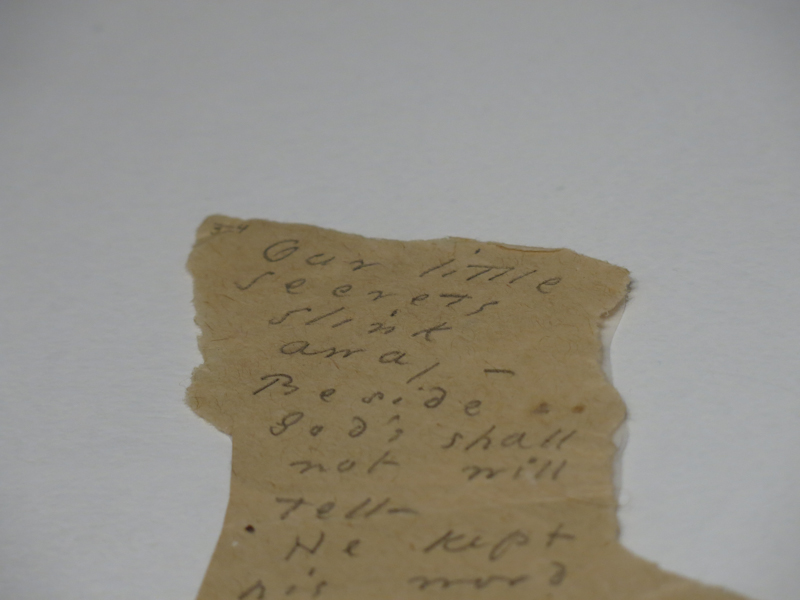 Our little
secrets
slink
away -
Beside
God's shall
not will
tell -
He kept
his word